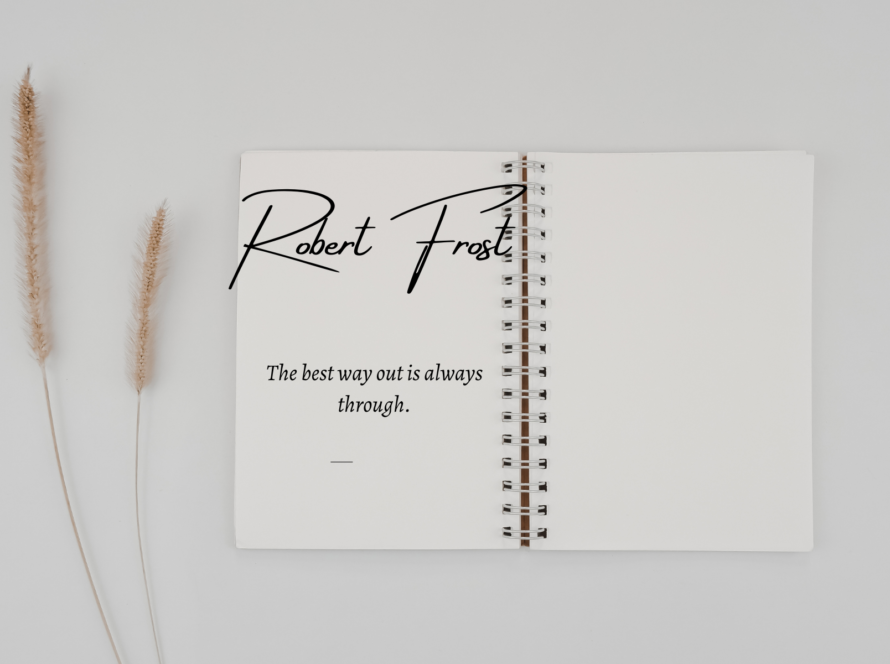 Robert Frost
The best way out is always
through.